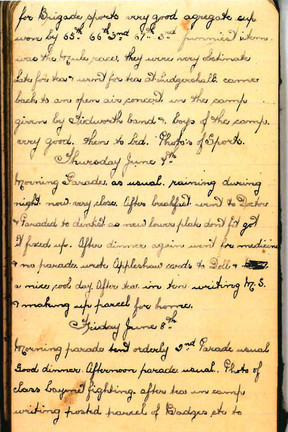 for Brigade sports very good agregate cup
won by 65th. 66th 2nd 67th 3rd funniest item
was the Mule race, they were very obstinate
late for tea & went for tea at Ludgershall. came
back to an open air concert in the camp
given by Tidworth band & boys of the camp.
very good. Then to bed. Photo's of Sports.
Thursday June 7th
Morning Parades as usual. raining during
night now very close. After breakfast went to Doctor
& Paraded to dentist as new lower plate dont fit got
it fixed up. After dinner again went for medicine
& no parade. wrote Appleshaw cards to Doll &
a nice cool day. After tea in ten writing M.S.
& making up parcel for home.
Friday June 8th
Morning parade tent orderly 2nd Parade usual
Good dinner. Afternoon parade usual. Photo of
class bayonet fighting. after tea in camp
writing postd parcel of Badges etc to